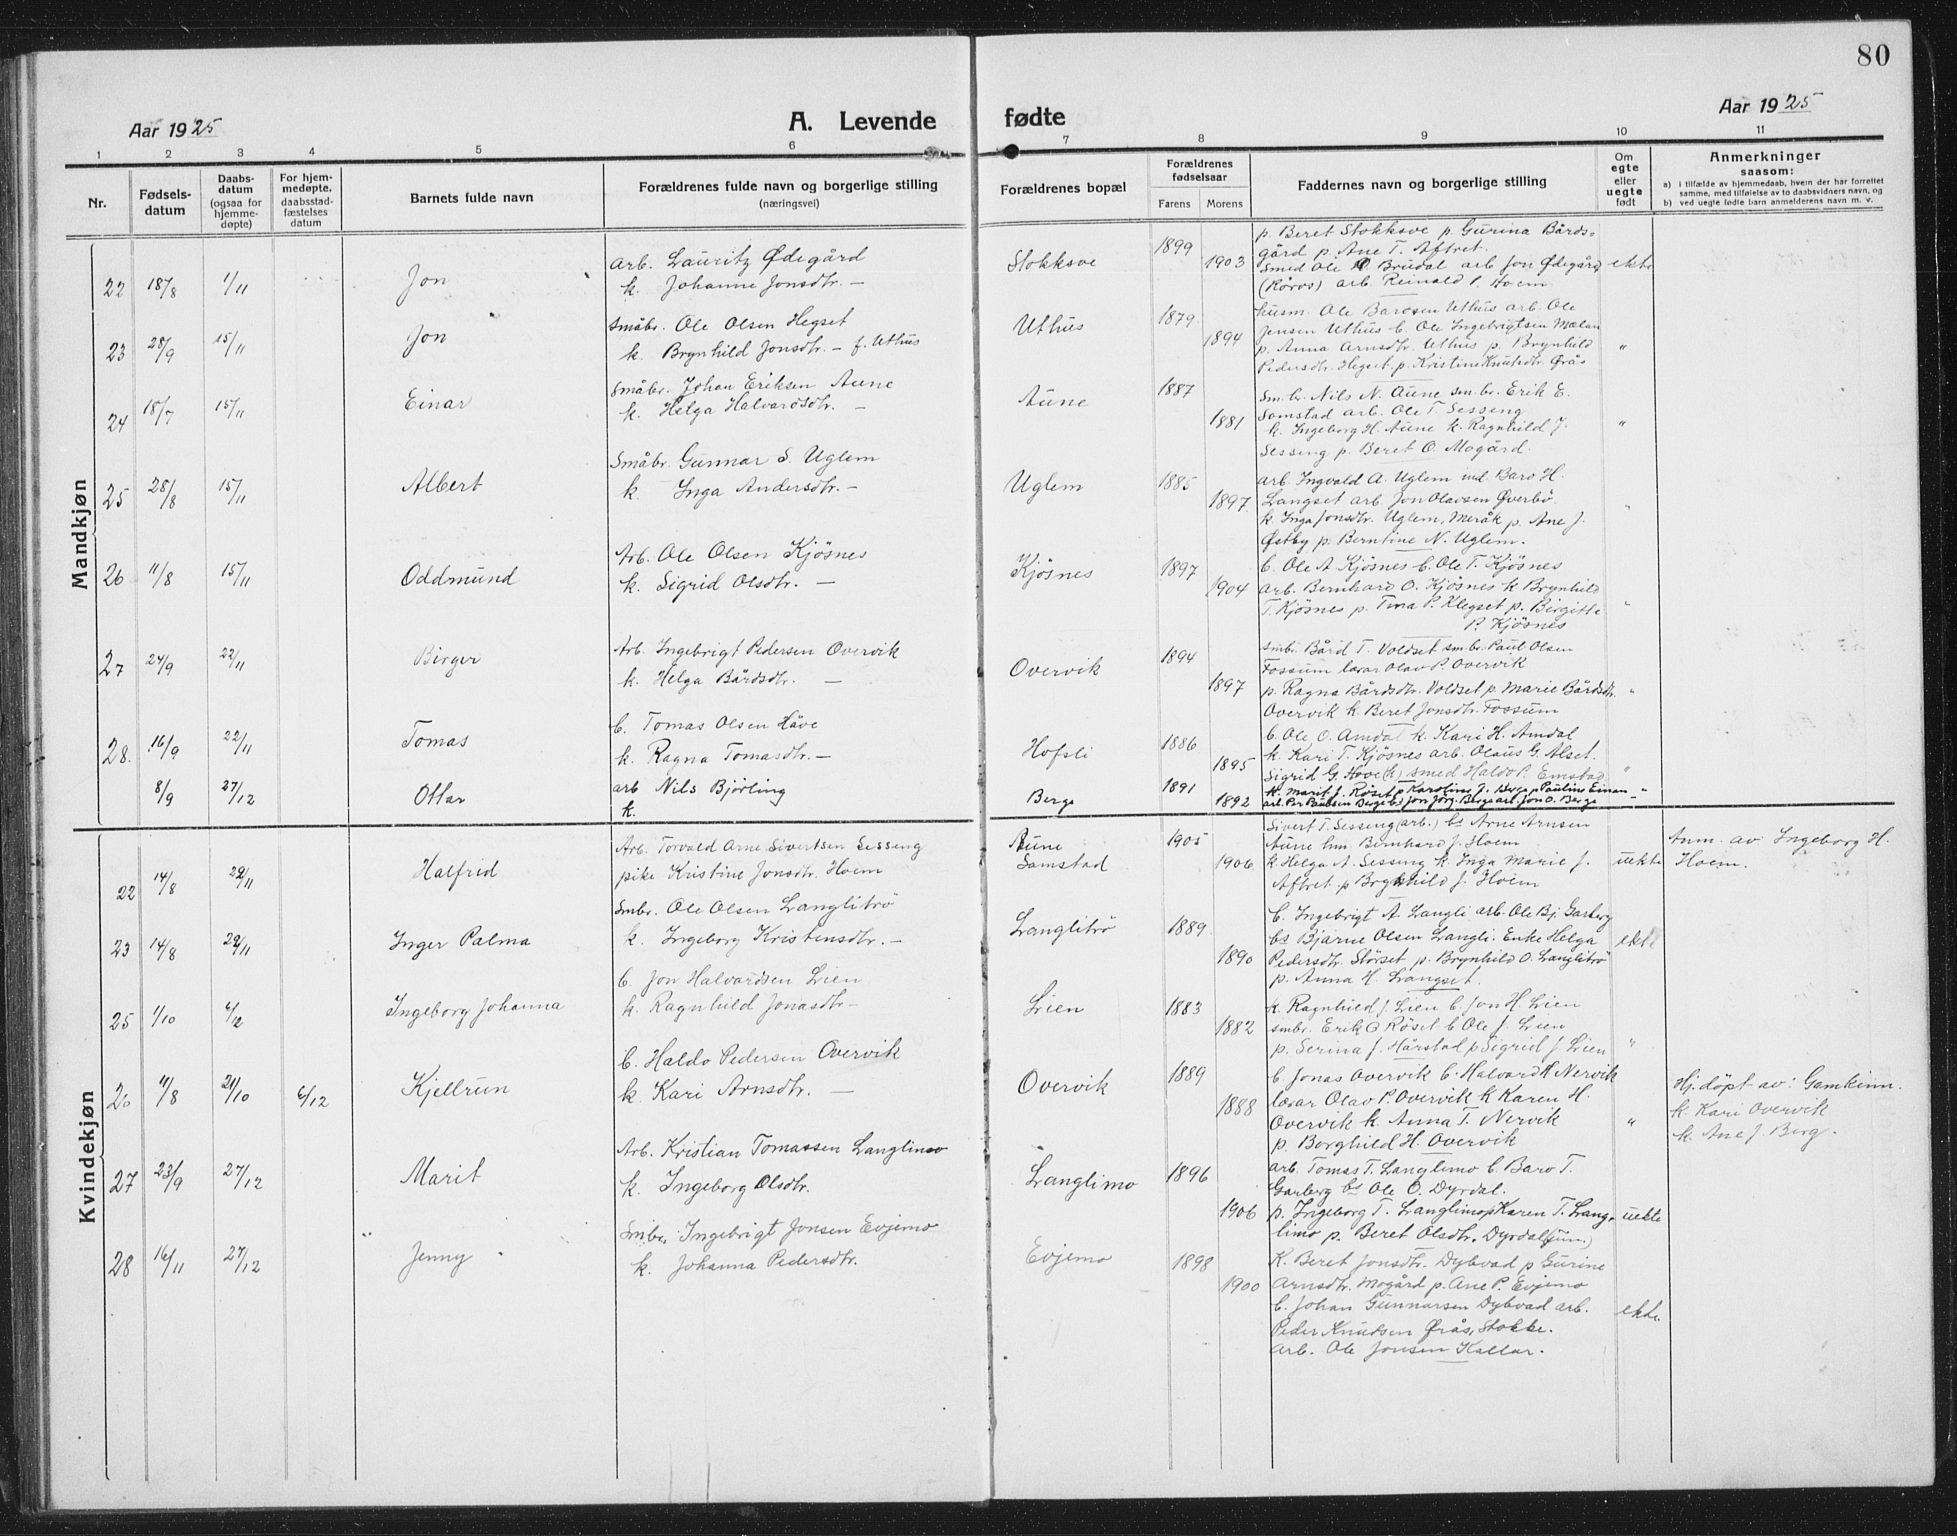 80
Aar 1925
A. Levende
fødte
Aar 1925
1 2 3 4 5 6 7 8 9 10 11
Nr.
Fødsels-
datum
Daabs-
datum
(ogsaa for
hjemme-
døpte)
For hjem-
medøpte,
daabsstad-
fæstelses
datum
Barnets fulde navn
Forældrenes fulde navn og borgerlige stilling
(næringsvei)
Forældrenes bopæl
Forældrenes
fødselsaar
Farens Morens
Faddernes navn og borgerlige stilling
Om
egte
eller
uegte
født
Anmerkninger
saasom:
a) i tilfælde av hjemmedaab, hvem der har forrettet
samme, med tilføielse av to daabsvidners navn, og
b) ved uegte fødte barn anmelderens navn m. v.
Mandkjøn
22 18/8 1/11 Jon
arb. Lauritz Ødegård
k. Johanne Jonsdtr. —
Stokksve 1899 1903
p. Beret Stokksve p. Gurina Bårds-
gård p. Ane T. Aftret.
Smed Ole O. Brudal arb Jon Ødegård
(Röros) arb. Reinald P. Hoem.
ekte
23 28/9 15/11 Jon
Småbr. Ole Olsen Hegset
k. Brynhild Jonsdtr. — f. Uthus
Uthus 1879 1894
husm. Ole Bardsen Uthus arb. Ole
Jensen Uthus b. Ole Ingebrigtsen Mælan
p. Anna Arnsdtr. Uthus p. Brynhild
Pedersdtr. Hegset p. Kristine Knutsdtr. Øràs
"
24 18/7 15/11 Einar
Småbr. Johan Eriksen Aune
k. Helga Halvardsdtr. —
Aune 1887 1881
Sm.br. Nils N. Aune sm.br. Erik E.
Somstad arb. Ole T. Sesseng
k. Ingeborg H. Aune k. Ragnhild J.
Sesseng p. Beret O. Mogård.
"
25 28/8 15/11 Albert
Småbr. Gunnar S. Uglem
k. Inga Andersdtr. —
Uglem 1885 1897
arb. Ingvald A. Uglem ind. Baro H.
Langset arb. Jon Olavsen Øverbö.
k. Inga Jonsdtr. Uglem, Meråk p. Ane J.
Østby p. Berntine N. Uglem.
"
26 11/8 15/11 Oddmund
Arb. Ole Olsen Kjösnes
k. Sigrid Olsdtr. —
Kjösnes 1897 1904
b. Ole A Kjösnes b. Ole T. Kjösnes
arb. Bernhard O. Kjösnes k Brynhild
T. Kjösnes p. Tina P. Klegset p. Birgitte
P. Kjösnes
"
27 24/9 22/11 Birger
Arb. Ingebrigt Pedersen Overvik
k. Helga Bårdsdtr. —
Overvik 1894 1897
smbr. Bård T. Voldset smbr. Paul Olsen
Fossum lærar Olav P. Overvik
p. Ragna Bårdsdtr. Voldset p. Marie Bårdsdtr.
Overvik k. Beret Jonsdtr. Fossum
"
28. 16/9 22/11 Tomas
b. Tomas Olsen Håve
k. Ragna Tomasdtr. —
Hofsli 1886 1895
b. Ole O. Amdal k. Kari H. Amdal
k. Kari T. Kjösnes arb. Olaus G. Alset.
Sigrid G. Hove (k) smed Haldo P. Emstad
"
8/9 27/12 Ottar
arb Nils Bjørling
k.
Berge 1891 1892
k. Marit J. Röset p Karoline J. Berge p Pauline Einan
arb. Per Paulsen Berge Jon Jörg. Berge arb. Jon O. Berge
"
Kvindekjøn
22 14/8 22/11 Halfrid
Arb. Torvald Arne Sivertsen Sesseng
pike Kristine Jonsdtr. Hoem
Aune
Samstad 1905 1906
Sivert T. Sesseng (arb.) bs Arne Arnsen
Aune hm Bernhard J. Hoem
k Helga A. Sesseng k. Inga Marie J.
Aftret p Brynhild J. Hoem
uekte
Anm. av Ingeborg H.
Hoem.
23 14/8 22/11 Inger Palma
Smbr. Ole Olsen Langlitrö
k. Ingeborg Kristensdtr. —
Langlitrö 1889 1890
b. Ingebrigt A. Langli arb. Ole Bj. Garberg
bs Bjarne Olsen Langli. Enke Helga
Pedersdtr. Störset p. Brynhild O. Langlitrö
p. Anna H. Langset.
ekte
25 1/10 6/12 Ingeborg Johanna
b. Jon Halvardsen Lien
k. Ragnhild Jonasdtr —
Lien 1883 1882
k. Ragnhild J. Lien b Jon H. Lien
smbr. Erik O Röset b Ole J. Lien
p. Serina J. Hårstad p Sigrid J. Lien
"
4/8 21/10 6/12 Kjellrun
b. Haldo Pedersen Overvik
k. Kari Arnsdtr. —
Overvik 1889 1888
b Jonas Overvik b. Halvard H Nervik
lærar Olav P. Overvik k Karen H.
Overvik k. Anna T. Nervik
p. Borghild H. Overvik
"
Hj. döpt av: Gamkinn.
k. Kari Overvik
k. Ane J. Berg.
27 23/9 27/12 Marit
Arb. Kristian Tomassen Langlimo
k. Ingeborg Olsdtr.
Langlimo 1896 1906
arb. Tomas T. Langlimo b. Baro T.
Garberg bs Ole O. Dyrdal.
p. Ingeborg T. Langlimo p Karen T. Lang-
limo p. Beret Olsdtr. Dyrdal
uekte
28 16/11 27/12 Jenny
Smbr. Ingebrigt Jonsen Evjemo
k. Johanna Pedersdtr.
Evjemo 1898 1900
K. Beret Jonsdtr. Dybvad p Gurine
Arnsdtr. Mogård p. Ane P. Evjemo
b. Johan Gunnarsen Dybvad arb.
Peder Knudsen Øràs, Stokke.
arb. Ole Jonsen Kallar.
ekte.